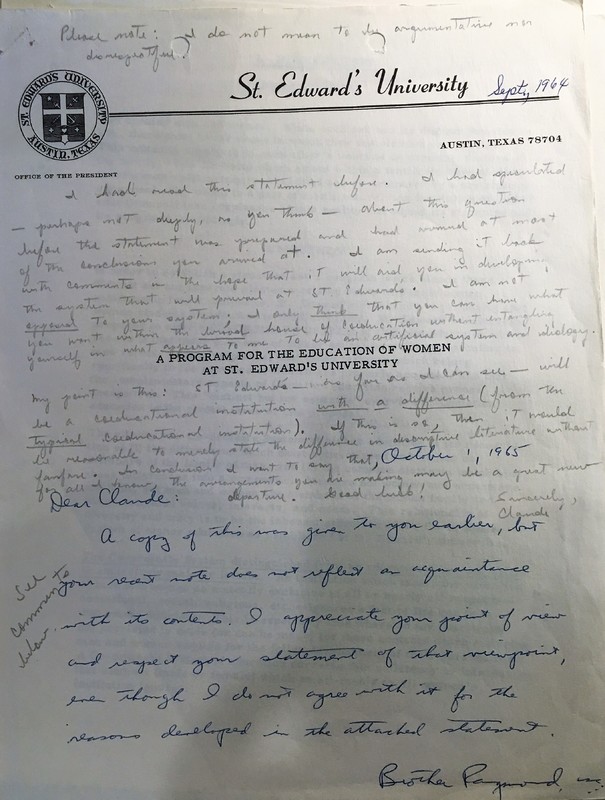 Please note: I do not mean to be argumentative nor
disrespectful.
ST. EDWARD'S UNIVERSITY
AUSTIN, TEXAS
St. Edward's University
Sept., 1964
AUSTIN, TEXAS 78704
OFFICE OF THE PRESIDENT
I had read this statement before. I had
— perhaps not deeply, as you think — about this question
before the statement was prepared and had arrived at most
of the conclusions you arrived at. I am sending it back
with comments in the hope that it will aid you in developing
the system that will prevail at St Edwards. I am not
opposed to your system; I only think that you can have what
you want within the broad house of coeducation without entangling
yourself in what appears to me to be an artificial system and
A PROGRAM FOR THE EDUCATION OF WOMEN
AT ST. EDWARD'S UNIVERSITY
My point is this: St Edwards — as far as I can see — will
be a coeducational institution with a difference (from the
typical coeducational institution). If this is so, then it would
be reasonable to merely state the difference in descriptive literature without
fanfare. In conclusion I want to say that,
for all I know, the arrangements you are making may be a great new
departure. Good luck!
Sincerely,
Claude
October 1, 1965
Dear Claude:
A copy of this was given to you earlier, but
your recent note does not reflect an acquaintance
with its contents. I appreciate your point of view
and respect your statement of that viewpoint,
even though I do not agree with it for the
reasons developed in the attached statement.
Brother Raymond,
See
comments
below.